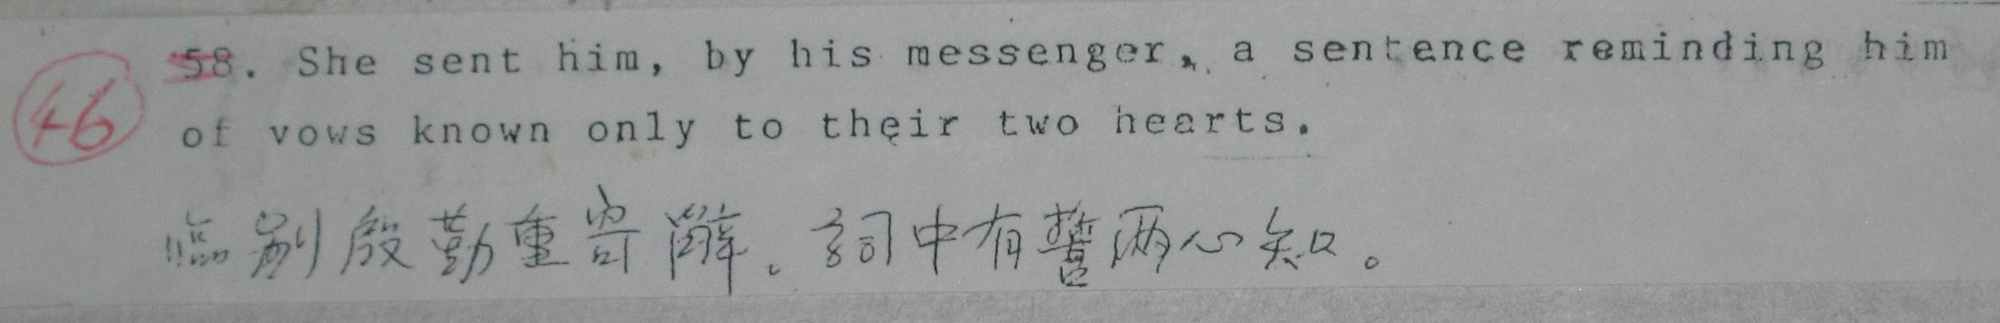 58. She sent him, by his messenger, a sentence reminding him
46
of vows known only to their two hearts.
臨別殷勤重寄辭。詞中有誓兩心知。